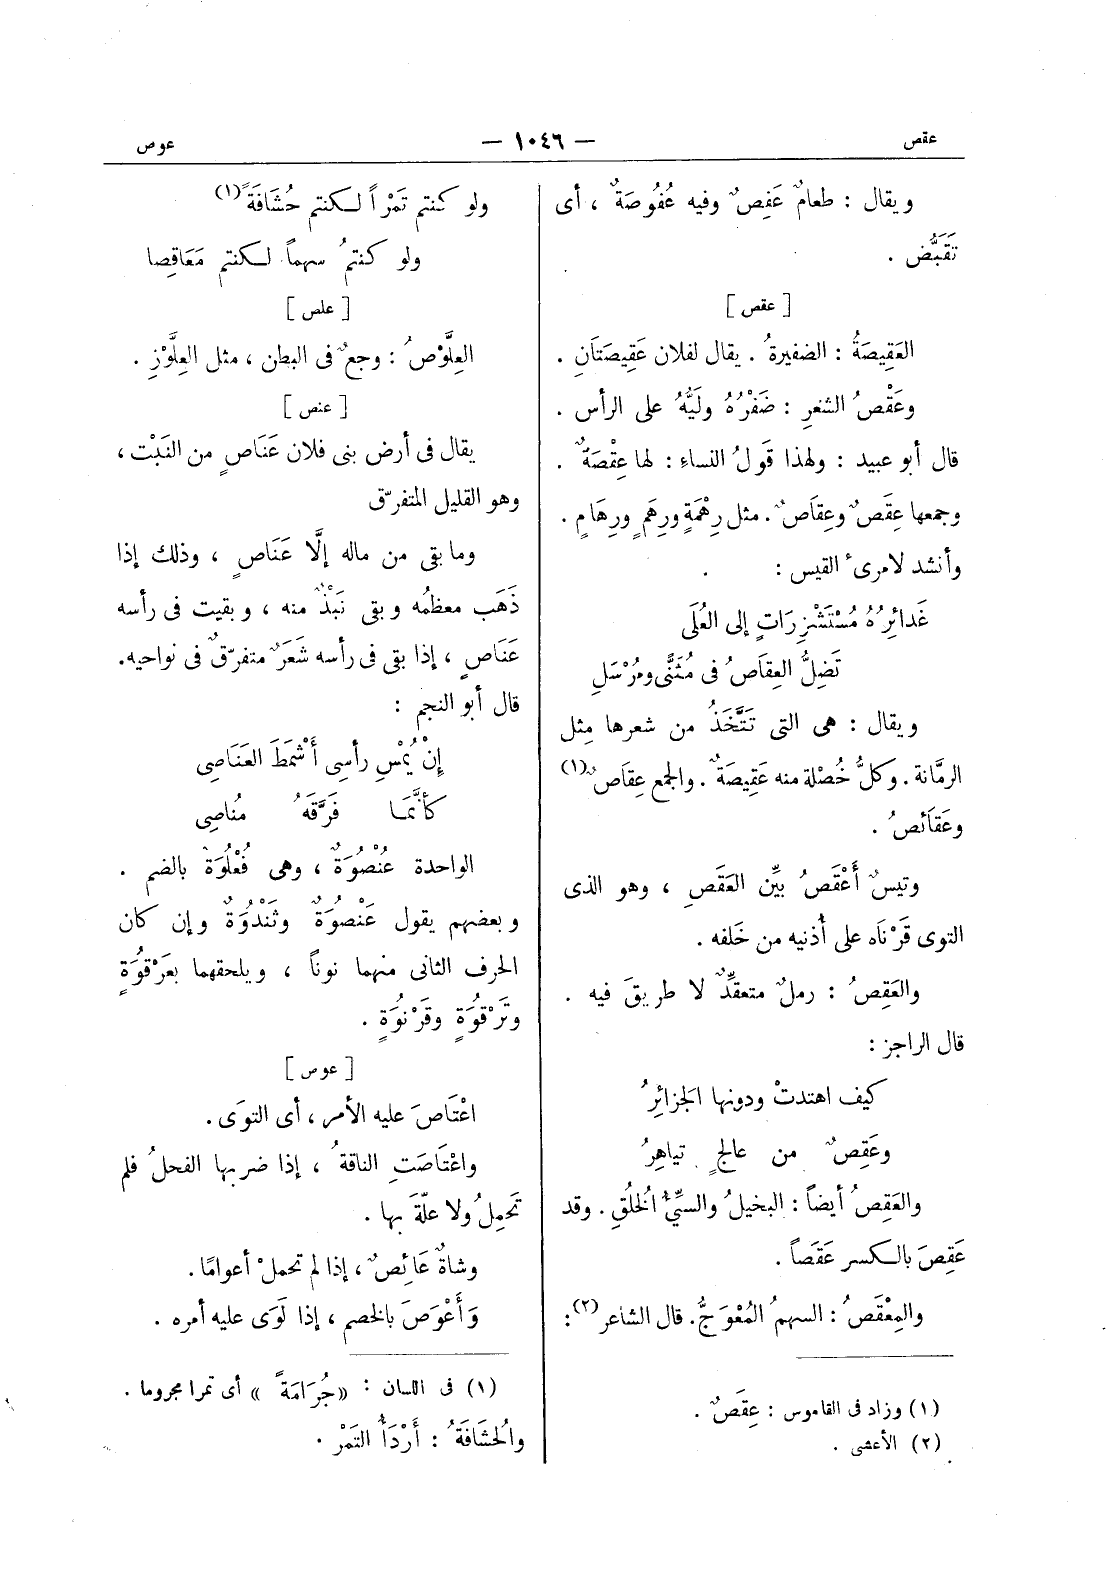 عقص
— ١٠٤٦ —
عوص
ويقال : طعامٌ عَفِصٌ وفيه عُفُوصَةٌ ، أى
تَقَبُّض .
[ عقص ]
العَقِيصَةُ : الضفيرةُ . يقال لفلان عَقِيصَتَانِ .
وعَقْصُ الشعَرِ : ضَفْرُهُ ولَيُّهُ على الرأس .
قال أبو عبيد : ولهذا قَولُ النساءِ : لها عِقْصَةٌ .
وجمعها عِقَصٌ وعِقَاصٌ . مثل رِهْمَةٍ ورِهَمٍ ورِهَامٍ .
وأنشد لامرىءٔ القيس :
غَدائِرُهُ مُسْتَشْزِرَاتٍ إلى العُلَى
تَضِلُّ العِقَاصُ فى مُثَنًّى ومُرْسَلِ
ويقال : هى التى تَتَّخَذُ من شعرها مِثل
الرمَّانة . وكلُّ خُصْلة منه عَقِيصَةٌ . والجمع عِقَاصٌ (١)
وعَقَائصُ .
وتيسٌ أَعْقَصُ بيِّن العَقَصِ ، وهو الذى
التوى قَرْنَاه على أُذنيه من خَلفه .
والعَقِصُ : رملٌ متعقِّدٌ لا طريقَ فيه .
قال الراجز :
كيف اهتدتْ ودونها الجَزائِرُ
وعَقِصٌ من عالجٍ تياهِرُ
والعَقِصُ أيضاً : البخيلُ والسيِّئُ الخُلُقِ . وقد
عَقِصَ بالكسر عَقَصاً .
والمِعْقَصُ : السهمُ المُعْوَجُّ . قال الشاعر (٢) :
(١) وزاد فى القاموس : عِقَصٌ .
(٢) الأعشى .
ولو كنتم تَمْراً لكنتم حُشَافَةً (١)
ولو كنتمُ سهماً لكنتم مَعَاقِصا
[ علص ]
العِلَّوْصُ : وجعٌ فى البطن ، مثل العِلَّوْزِ .
[ عنص ]
يقال فى أرض بنى فلان عَنَاصٍ من النَبْت ،
وهو القليل المتفرّق
وما بقى من ماله إلَّا عَنَاصٍ ، وذلك إذا
ذَهَب معظمُه وبقى نَبْذٌ منه ، وبقيت فى رأسه
عَنَاصٍ ، إذا بقى فى رأسه شَعَرٌ متفرّقٌ فى نواحيه .
قال أبو النجم :
إنْ يُمْسِ رأسِى أَشْمَطَ العَنَاصِى
كأَنَّمَا فَرَّقَهُ مُناصِى
الواحدة عُنْصُوَةٌ ، وهى فُعْلُوَةٌ بالضم .
وبعضهم يقول عَنْصُوَةٌ وثَنْدُوَةٌ وإن كان
الحرف الثانى منهما نوناً ، ويلحقهما بعَرْقُوَةٍ
وتَرْقُوَةٍ وقَرْنُوَةٍ .
[ عوص ]
اعْتَاصَ عليه الأمر ، أى التوَى .
واعْتَاصَتِ الناقةُ ، إذا ضربها الفحلُ فلم
تَحمِلُ ولا علّةَ بها .
وشاةٌ عَائِصٌ ، إذا لم تحملْ أعوامًا .
وَأَعْوَصَ بالخصم ، إذا لَوَى عليه أمره .
(١) فى اللسان : « جُرَامَةً » أى تمرا مجروما .
والحُشَافَةُ : أَرْدَأُ التَمْر .